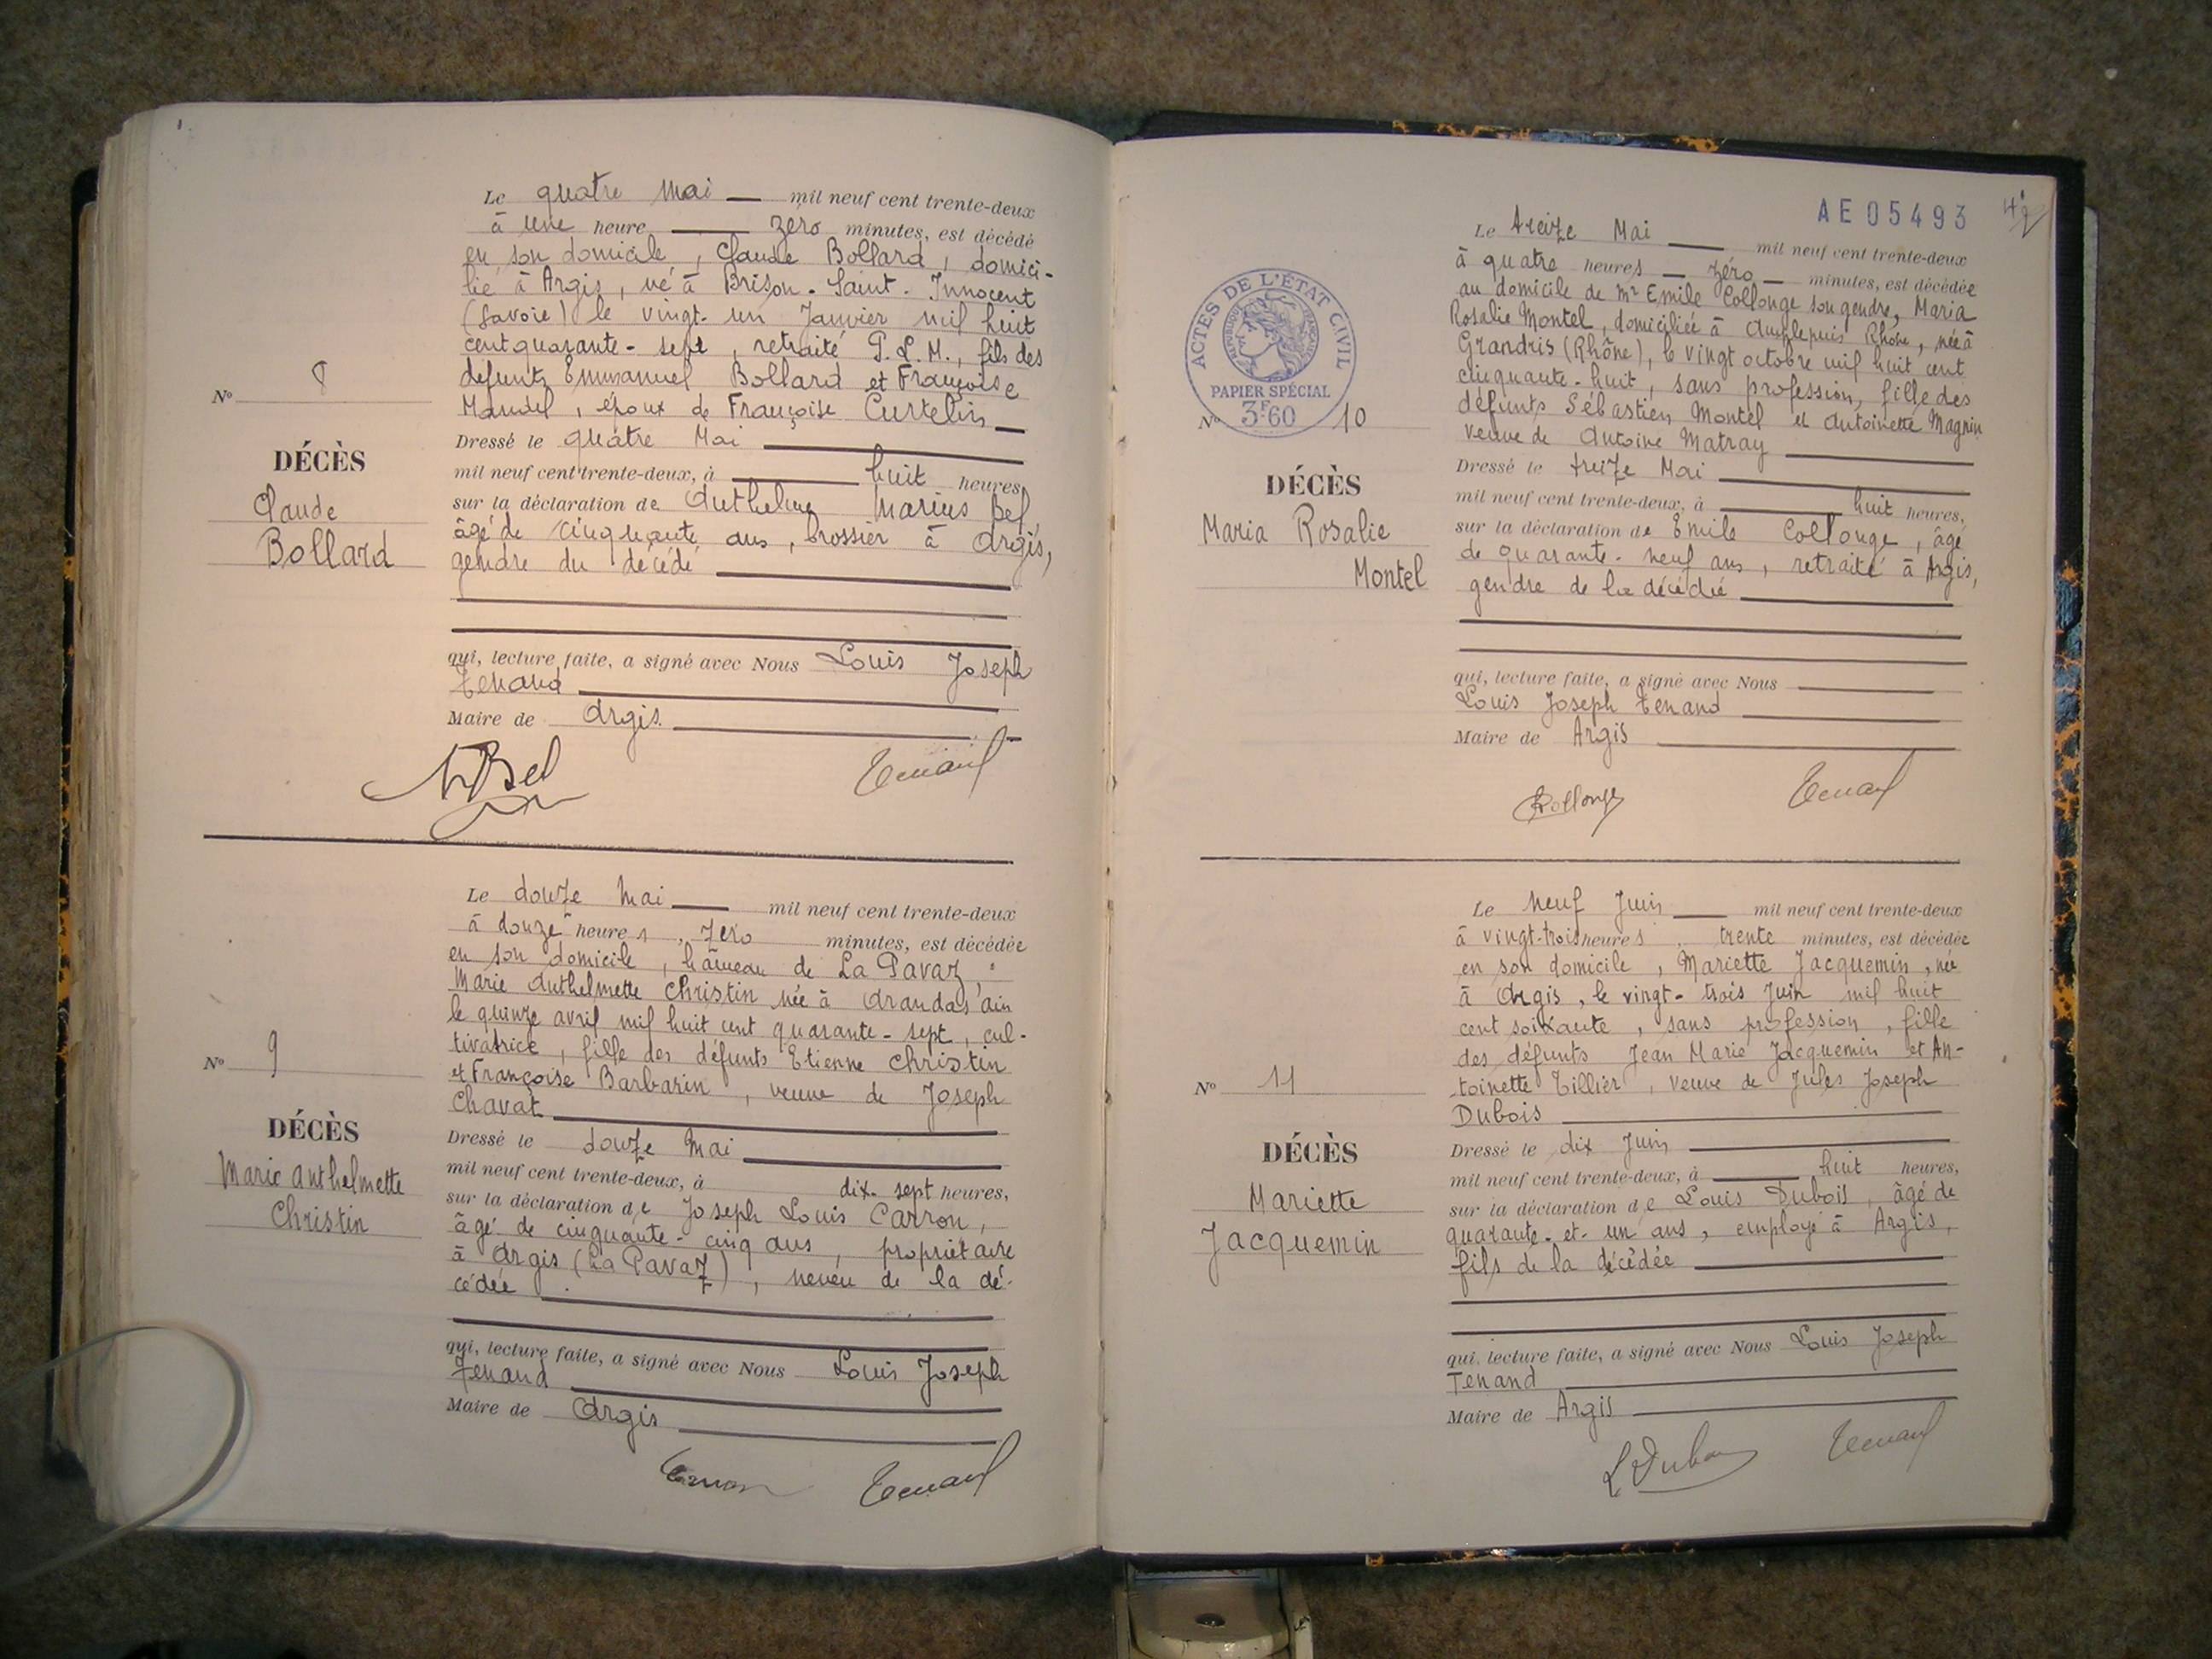 Le quatre Mai — mil neuf cent trente-deux
à une heure — zéro minutes, est décédé
en son domicile, Claude Bollard, domici-
lié à Argis, né à Brison-Saint-Innocent
(Savoie) le vingt-un Janvier mil huit
cent quarante-sept, retraité P.L.M., fils des
défunts Emmanuel Bollard et Françoise
Mandel, époux de Françoise Curtelin
Nº 8
DÉCÈS
Claude
Bollard
Dressé le quatre Mai
mil neuf cent trente-deux, à huit heures,
sur la déclaration de Anthelme Marius Bel
âgé de cinquante ans, brossier à Argis,
gendre du décédé
qui, lecture faite, a signé avec Nous Louis Joseph
Tenand
Maire de Argis.
MBel Tenand
Le douze Mai — mil neuf cent trente-deux
à douze heures, zéro minutes, est décédée
en son domicile, hameau de La Pavaz,
Marie Anthelmette Christin née à Arandas Ain
le quinze avril mil huit cent quarante-sept, cul-
tivatrice, fille des défunts Etienne Christin
et Françoise Barbarin, veuve de Joseph
Chavat
Nº 9
DÉCÈS
Marie Anthelmette
Christin
Dressé le douze Mai
mil neuf cent trente-deux, à dix-sept heures,
sur la déclaration de Joseph Louis Carron,
âgé de cinquante-cinq ans, propriétaire
à Argis (La Pavaz), neveu de la dé-
cédée
qui, lecture faite, a signé avec Nous Louis Joseph
Tenand
Maire de Argis
Carron Tenand
AE05493
ACTES DE L'ÉTAT CIVIL
RÉPUBLIQUE FRANÇAISE
PAPIER SPÉCIAL
3F60
Le treize Mai — mil neuf cent trente-deux
à quatre heures — zéro — minutes, est décédée
au domicile de Mr Emile Collonge son gendre, Maria
Rosalie Montel, domiciliée à Amplepuis Rhône, née à
Grandris (Rhône), le vingt octobre mil huit cent
cinquante-huit, sans profession, fille des
défunts Sébastien Montel et Antoinette Magnin
veuve de Antoine Matray
Nº 10
DÉCÈS
Maria Rosalie
Montel
Dressé le treize Mai
mil neuf cent trente-deux, à huit heures,
sur la déclaration de Emile Collonge, âgé
de quarante-neuf ans, retraité à Argis,
gendre de la décédée
qui, lecture faite, a signé avec Nous
Louis Joseph Tenand
Maire de Argis
Collonge Tenand
Le neuf Juin — mil neuf cent trente-deux
à vingt-trois heures, trente minutes, est décédée
en son domicile, Mariette Jacquemin, née
à Argis, le vingt-trois Juin mil huit
cent soixante, sans profession, fille
des défunts Jean Marie Jacquemin et An-
toinette Tillier, veuve de Jules Joseph
Dubois
Nº 11
DÉCÈS
Mariette
Jacquemin
Dressé le dix Juin
mil neuf cent trente-deux, à huit heures,
sur la déclaration de Louis Dubois, âgé de
quarante-et-un ans, employé à Argis,
fils de la décédée
qui, lecture faite, a signé avec Nous Louis Joseph
Tenand
Maire de Argis
L Dubois Tenand